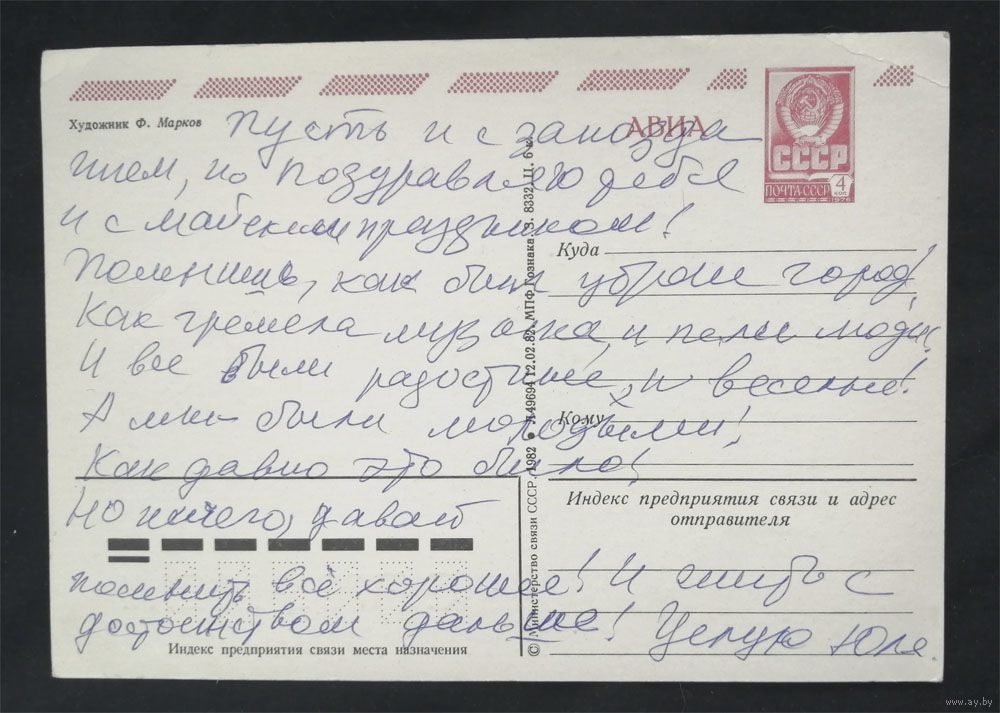 Художник Ф. Марков
АВИА
СССР
ПОЧТА СССР
4
КОП
1976
Пусть и с запозда
нием, но поздравляю тебя
и с майским праздником!
Помнишь, как был убран город!
Как гремела музыка, и пели люди!
И все были радостные, и веселые!
А мы были молодыми!
Как давно это было!
Но ничего, давай
помнить всё хорошее! И жить с
достоинством дальше! Целую Юля.
Куда
Кому
Индекс предприятия связи и адрес
отправителя
Индекс предприятия связи места назначения
© Министерство связи СССР. 1982 ● А 49694 12.02.82. МПФ Гознака. З. 8332. Ц. 6 к.
www.ay.by